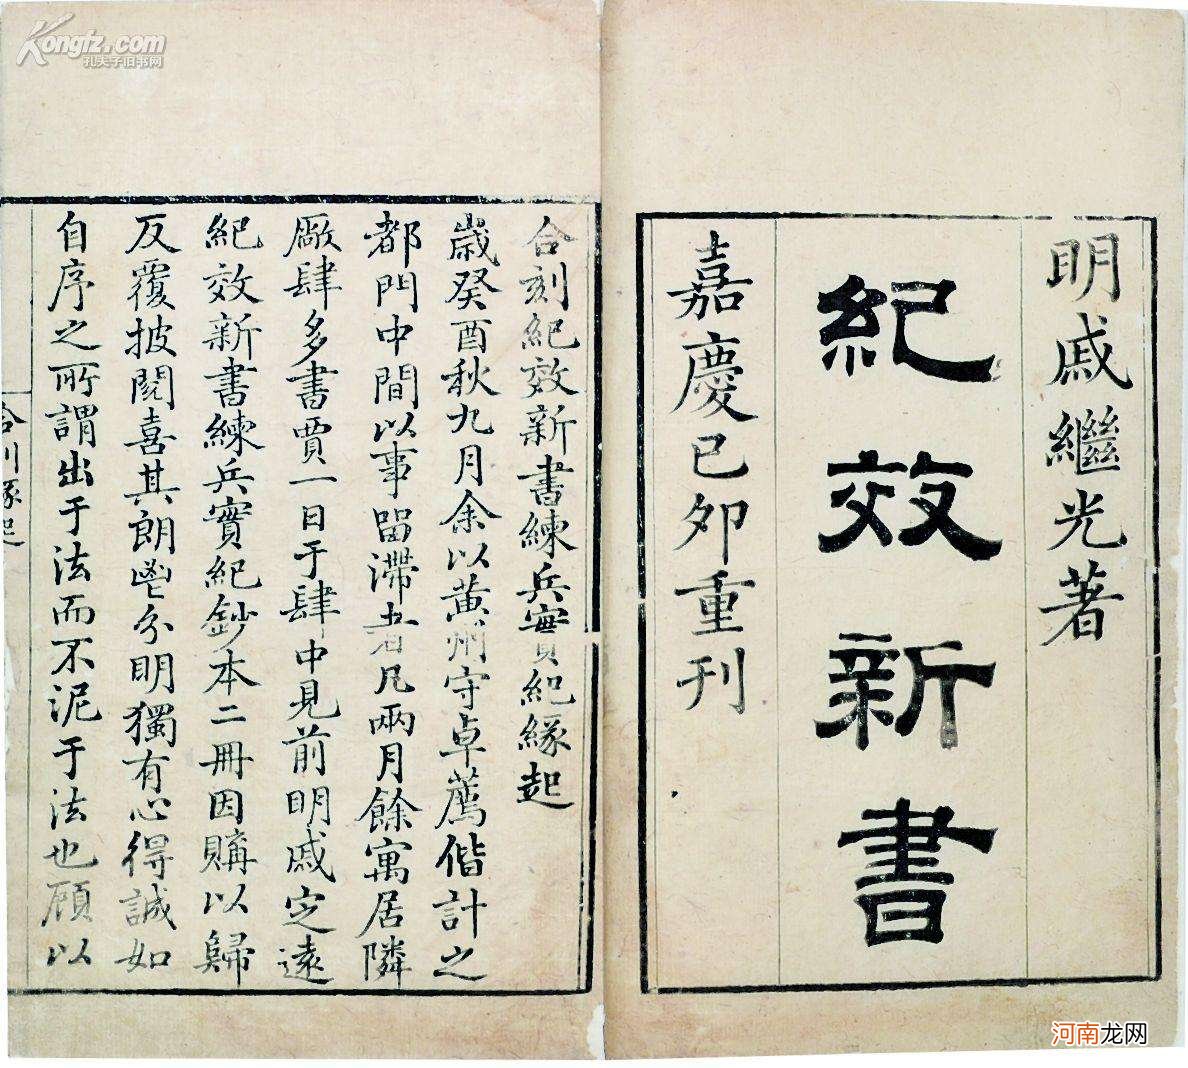 明戚繼光著
紀效新書
嘉慶己卯重刊
合刻紀效新書練兵實紀緣起
歲癸酉秋九月余以黃州守卓薦偕計之
都門中間以事留滯者凡兩月餘寓居隣
厰肆多書賈一日于肆中見前明戚定遠
紀效新書練兵實紀鈔本二冊因購以歸
反覆披閱喜其朗鬯分明獨有心得誠如
自序之所謂出于法而不泥于法也顧以
Kongfz.com
孔夫子旧书网
河南龙网